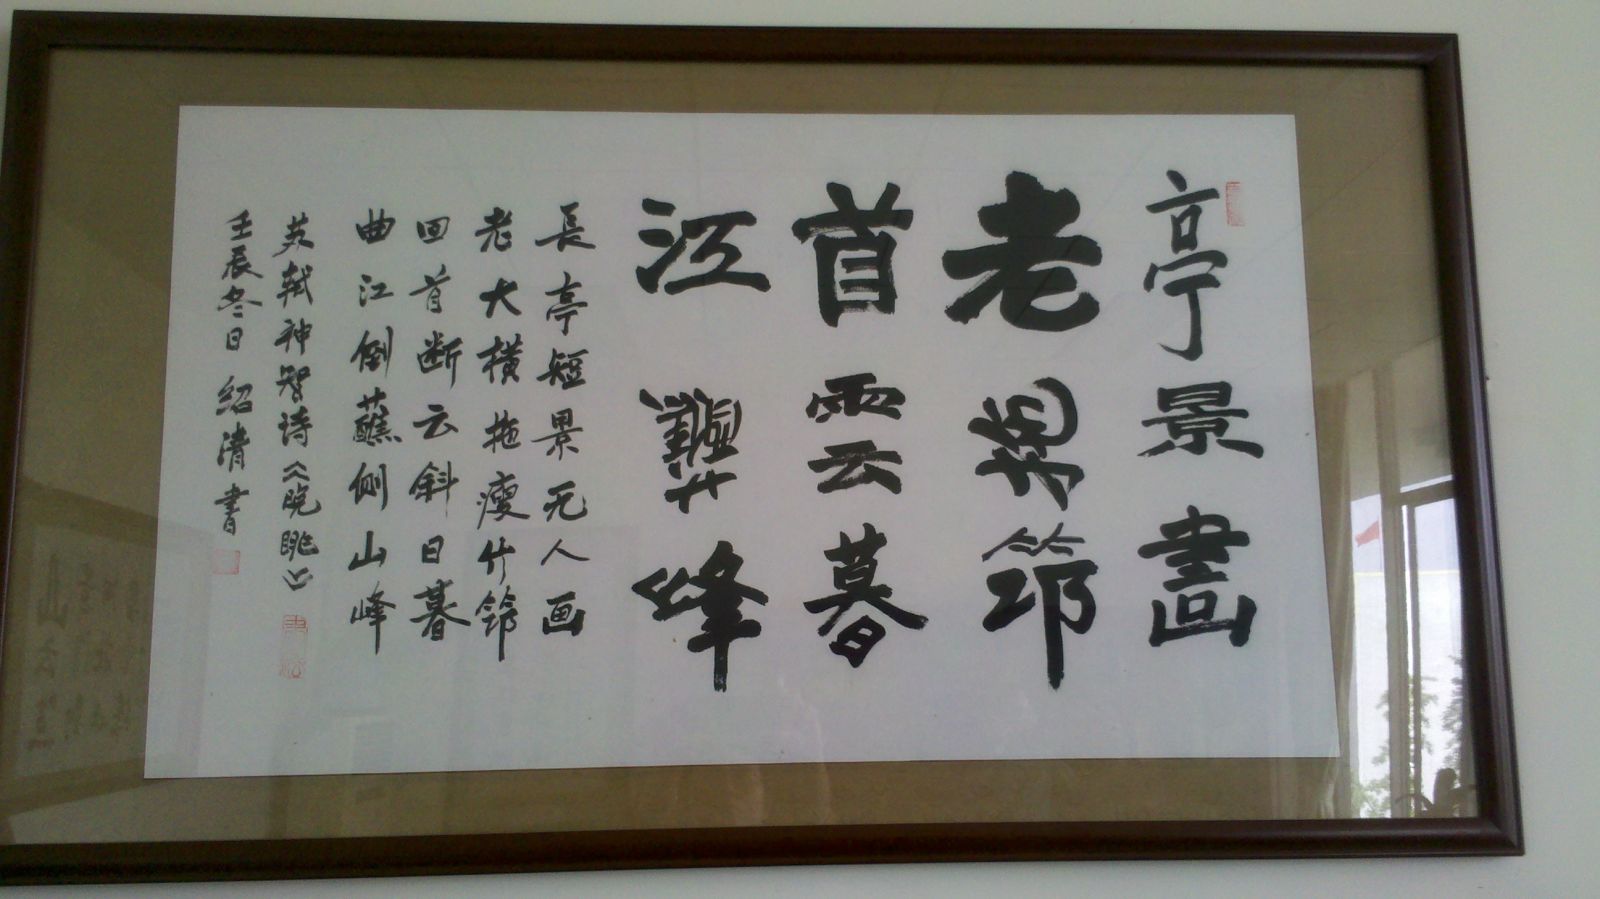 亭景畫
老拖筇
首雲暮
江蘸峰
長亭短景无人画
老大横拖瘦竹筇
回首断云斜日暮
曲江倒蘸侧山峰
苏轼神智诗《晚眺》
壬辰冬日 紹清書